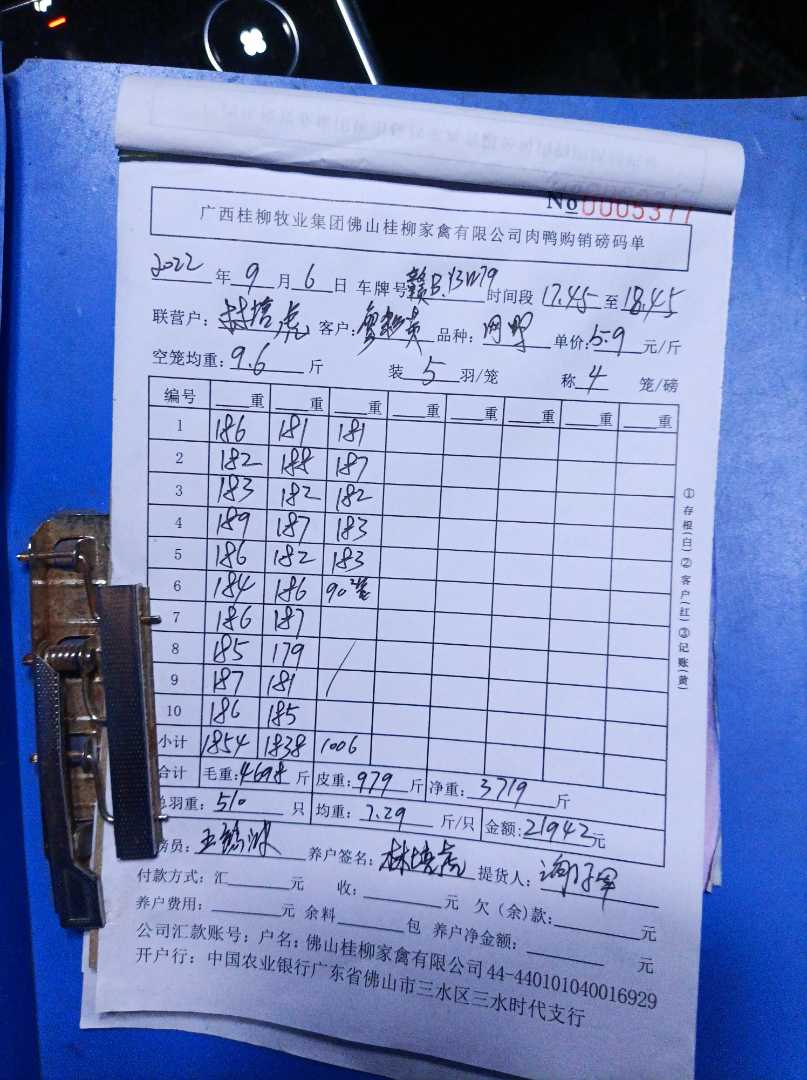 No 0005377
广西桂柳牧业集团佛山桂柳家禽有限公司肉鸭购销磅码单
2022 年 9 月 6 日 车牌号 赣B.Y3W79 时间段 17.45 至 18.45
联营户: 林培虎 客户: 品种: 单价: 5.9 元/斤
空笼均重: 9.6 斤 装 5 羽/笼 称 4 笼/磅
编号 重 重 重 重 重 重 重 重
1 186 181 181
2 182 188 187
3 183 182 182
4 189 187 183
5 186 182 183
6 184 186 90 2笼
7 186 187
8 185 179
9 187 181
10 186 185
小计 1854 1838 1006
合计 毛重: 4698 斤 皮重: 979 斤 净重: 3719 斤
总羽重: 510 只 均重: 7.29 斤/只 金额: 21942 元
务员: 养户签名: 林培虎 提货人:
付款方式: 汇 元 收: 元 欠(余)款: 元
养户费用: 元 余料 包 养户净金额: 元
公司汇款账号: 户名: 佛山桂柳家禽有限公司 44-440101040016929
开户行: 中国农业银行广东省佛山市三水区三水时代支行
①存根(白)②客户(红)③记账(黄)